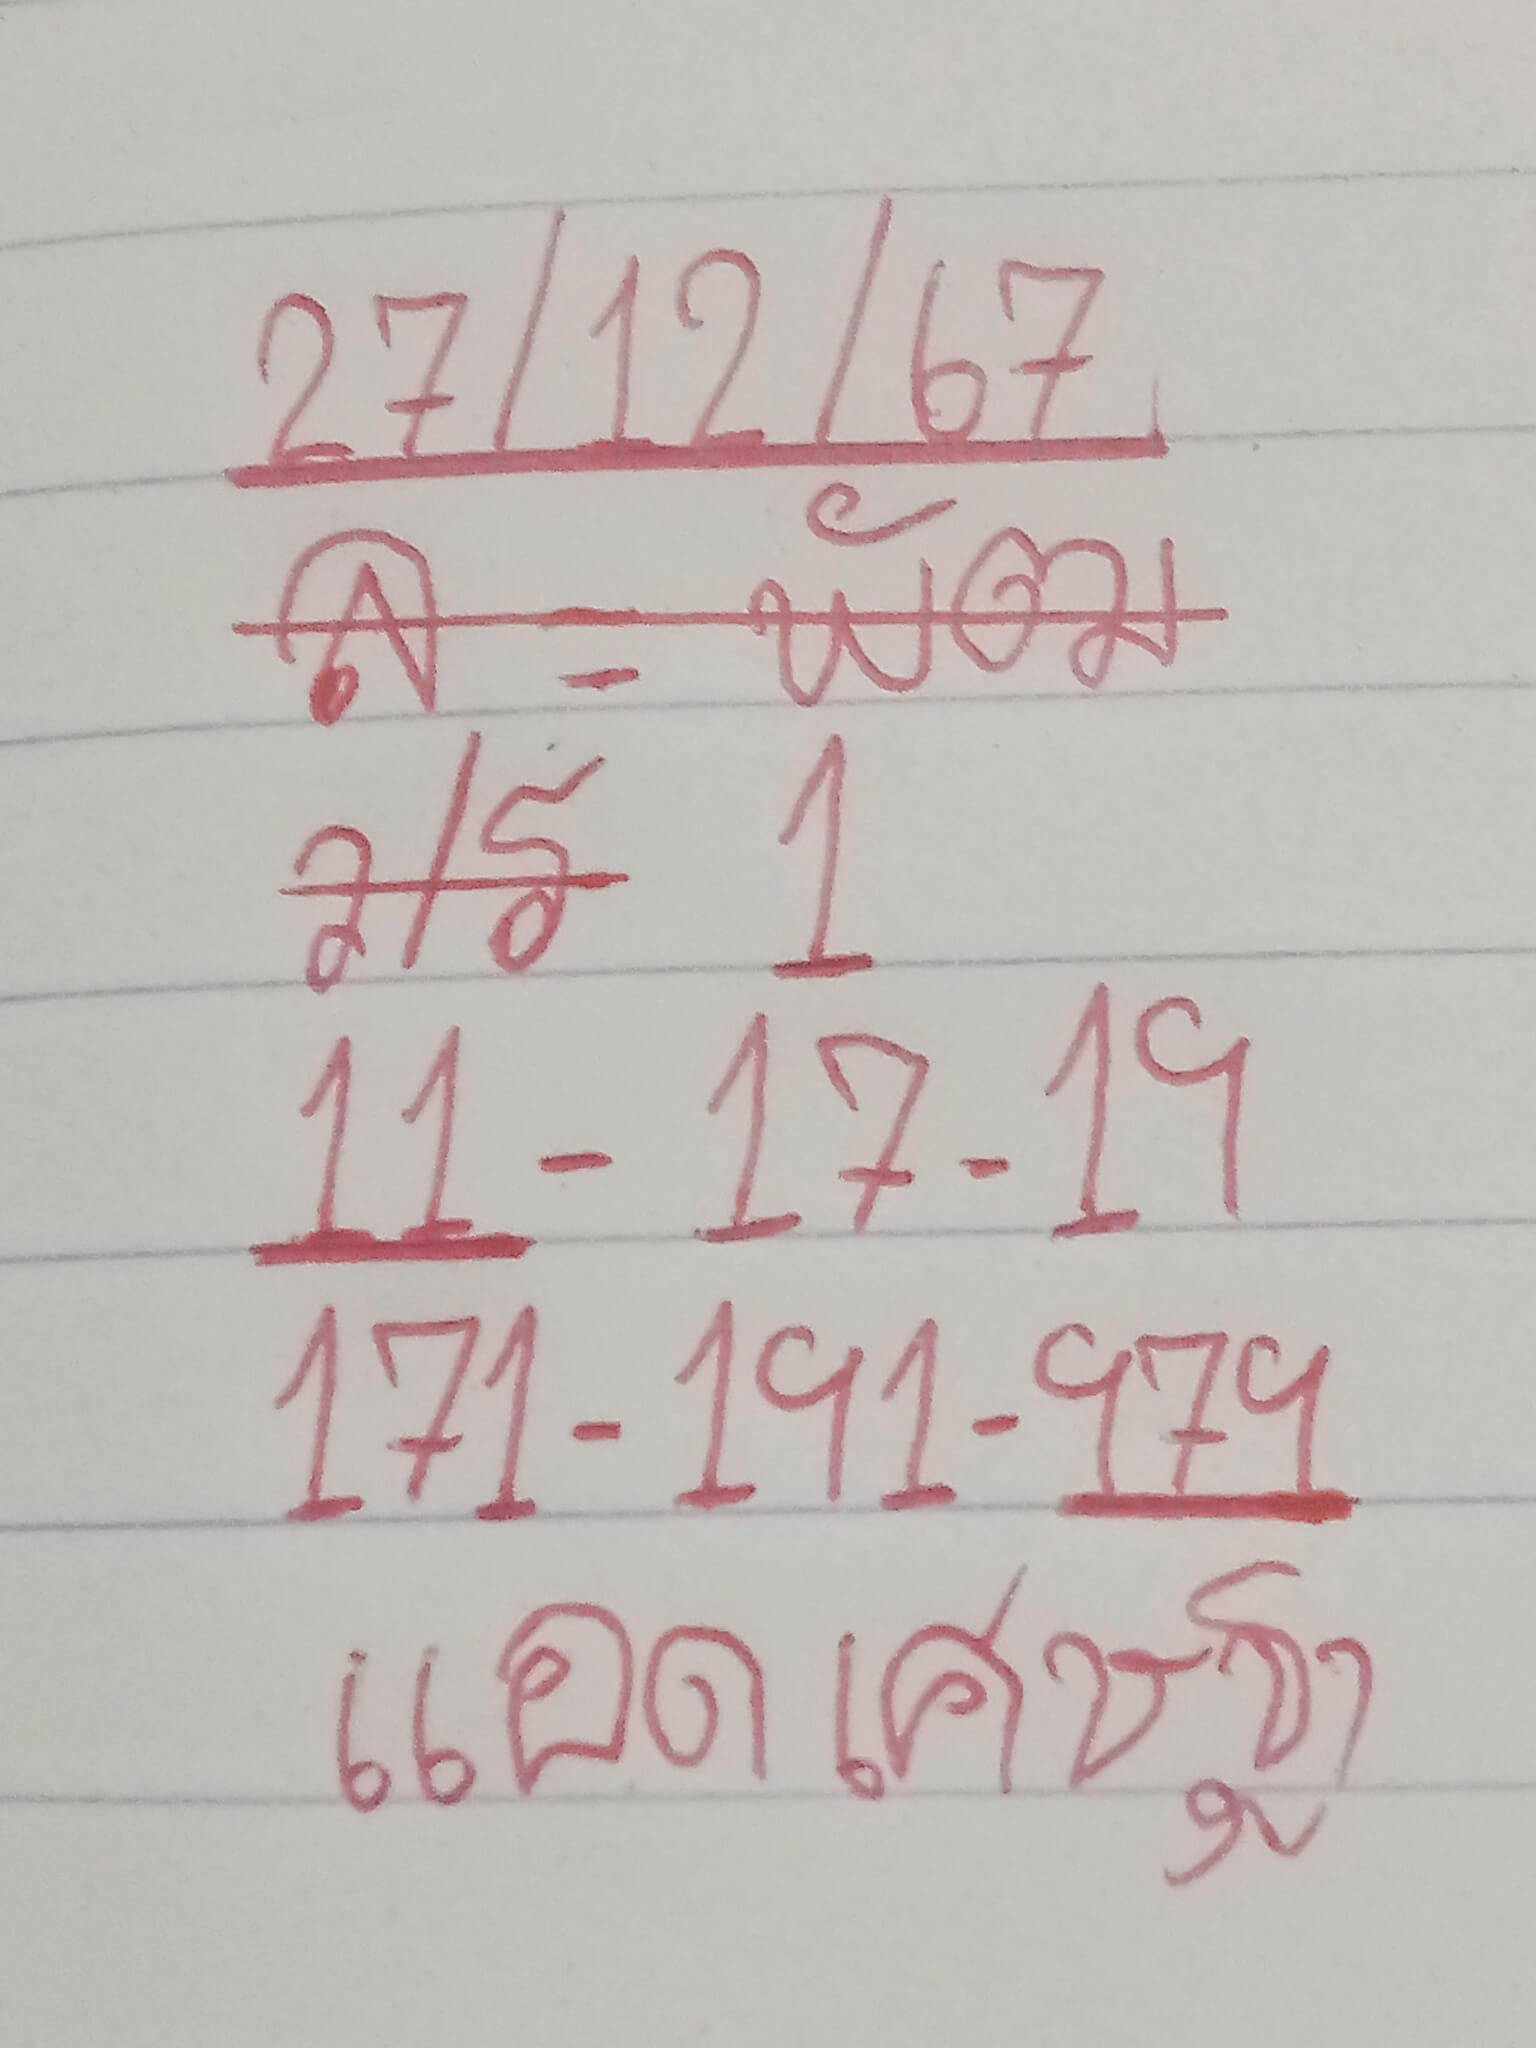 27/12/67
ล = พัฒม
ว/ร 1
11 - 17 - 19
171 - 191 - 979
แอด เศรษฐา